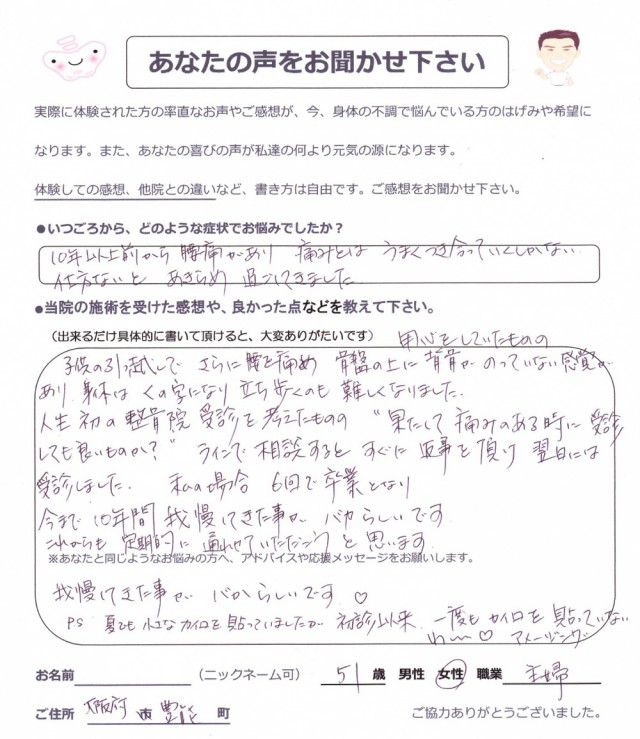 あなたの声をお聞かせ下さい
実際に体験された方の率直なお声やご感想が、今、身体の不調で悩んでいる方のはげみや希望に
なります。また、あなたの喜びの声が私達の何より元気の源になります。
体験しての感想、他院との違いなど、書き方は自由です。ご感想をお聞かせ下さい。
●いつごろから、どのような症状でお悩みでしたか？
10年以上前から 腰痛があり 痛みとは うまくつき合っていくしかない
仕方ないと あきらめ 過ごしてきました
●当院の施術を受けた感想や、良かった点などを教えて下さい。
（出来るだけ具体的に書いて頂けると、大変ありがたいです） 用心をしていたものの
子供の引っ越しで さらに腰を痛め 骨盤の上に 背骨が のっていない感覚が
あり 身体は くの字になり 立ち歩くのも 難しくなりました.
人生 初の 整骨院 受診を 考えたものの "果たして 痛みのある時に 受診
しても良いものか?" ラインで 相談すると すぐに 返事を 頂け 翌日には
受診しました. 私の場合 6回で 卒業となり
今まで 10年間 我慢してきた事が バカらしいです
これからも 定期的に 通わせていただこう と 思います
※あなたと同じようなお悩みの方へ、アドバイスや応援メッセージをお願いします。
我慢してきた事が バカらしいです ♡
PS 夏でも 小さなカイロを 貼っていましたが 初診以来 一度も カイロを 貼っていない
わ〜♡ アメージング
お名前 （ニックネーム可） 51 歳 男性 女性 職業 主婦
ご住所 大阪府 市 豊能 町 ご協力ありがとうございました。